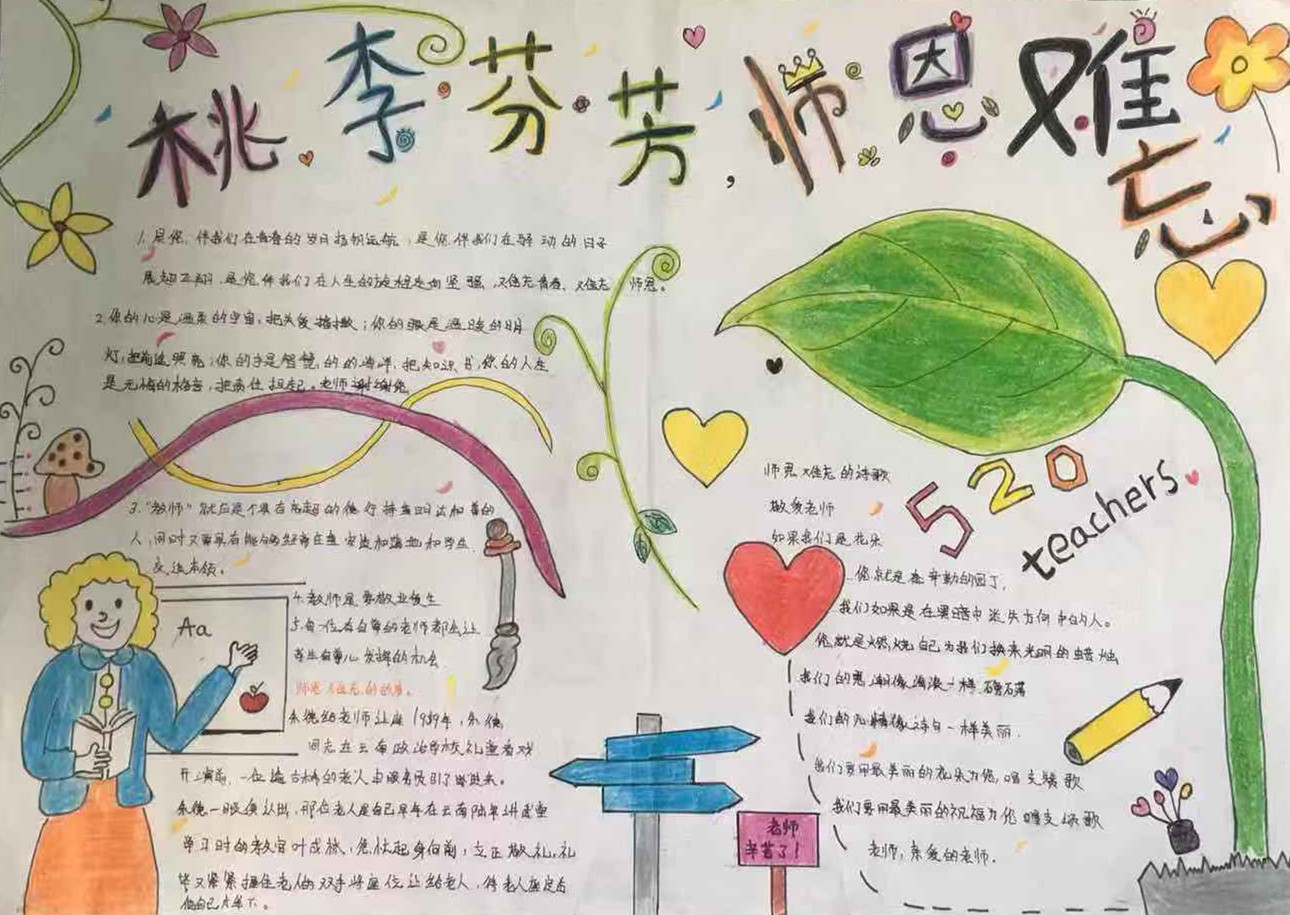 桃李芬芳,师恩难忘
1. 是您,伴我们在青春的岁月扬帆远航,是您伴我们在驿动的日子
展翅飞翔,是您伴我们在人生的旅程走向坚强,难忘青春,难忘师恩。
2. 你的心是温柔的宇宙,把关爱播撒;你的眼是温暖的明
灯,把前途照亮;你的手是智慧的的海洋,把知识;你的人生
是无悔的格言,把责任担起。老师谢谢您
3. "教师"就应是个具有高超的德行
人,同时又需具有能够经常在
反这本领。
Aa
4. 教师是要敬业爱生
5. 每一位有自尊的老师都会让
学生有尊儿发挥的机会
师恩难忘的故事。
朱德给老师让座 1959年,朱德
同志在云南政治学校礼堂看戏
开演前,一位遍古稀的老人由服务员引了进来。
朱德一眼便认出,那位老人是自己早年在云南陆军讲武堂
学习时的教官叶成林,急忙起身向前,立正敬礼,礼
毕又紧紧握住老人的双手将座位让给老人,待老人座定后
他自己才坐下。
师恩难忘的诗歌
敬爱老师
如果我们是花朵
您就是在辛勤的园丁,
我们如果是在黑暗中迷失方向中的人。
您就是燃烧自己为我们换来光明的蜡烛
我们的恩潮像海浪一样
我们的心情像诗句一样美丽.
我们要用最美丽的花朵为您,唱支赞歌
我们要用最美丽的祝福为您唱支颂歌
老师,亲爱的老师.
520
teachers
老师
辛苦了!